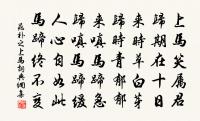 上馬笑屬君
歸期在十日
來時草白芽
歸時青郁郁
來嗔馬蹄急
歸嗔馬蹄緩
人心自如此
馬蹄終不變
之上馬詞